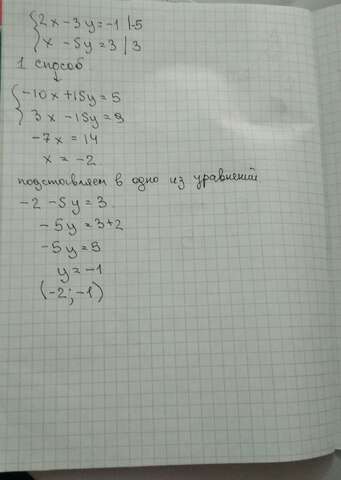 {2x - 3y = -1 | -5
{x - 5y = 3 | 3
1 способ
↓
{-10x + 15y = 5
{3x - 15y = 9
-7x = 14
x = -2
подставляем в одно из уравнений
-2 - 5y = 3
-5y = 3+2
-5y = 5
y = -1
(-2; -1)